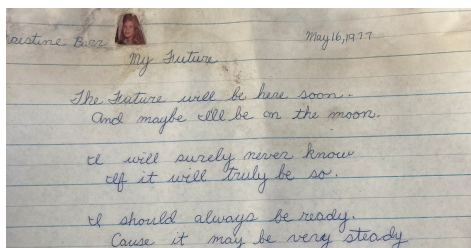 May 16, 1977
My Future
The Future will be here soon.
And maybe I'll be on the moon.
I will surely never know
If it will truly be so.
I should always be ready.
Cause it may be very steady